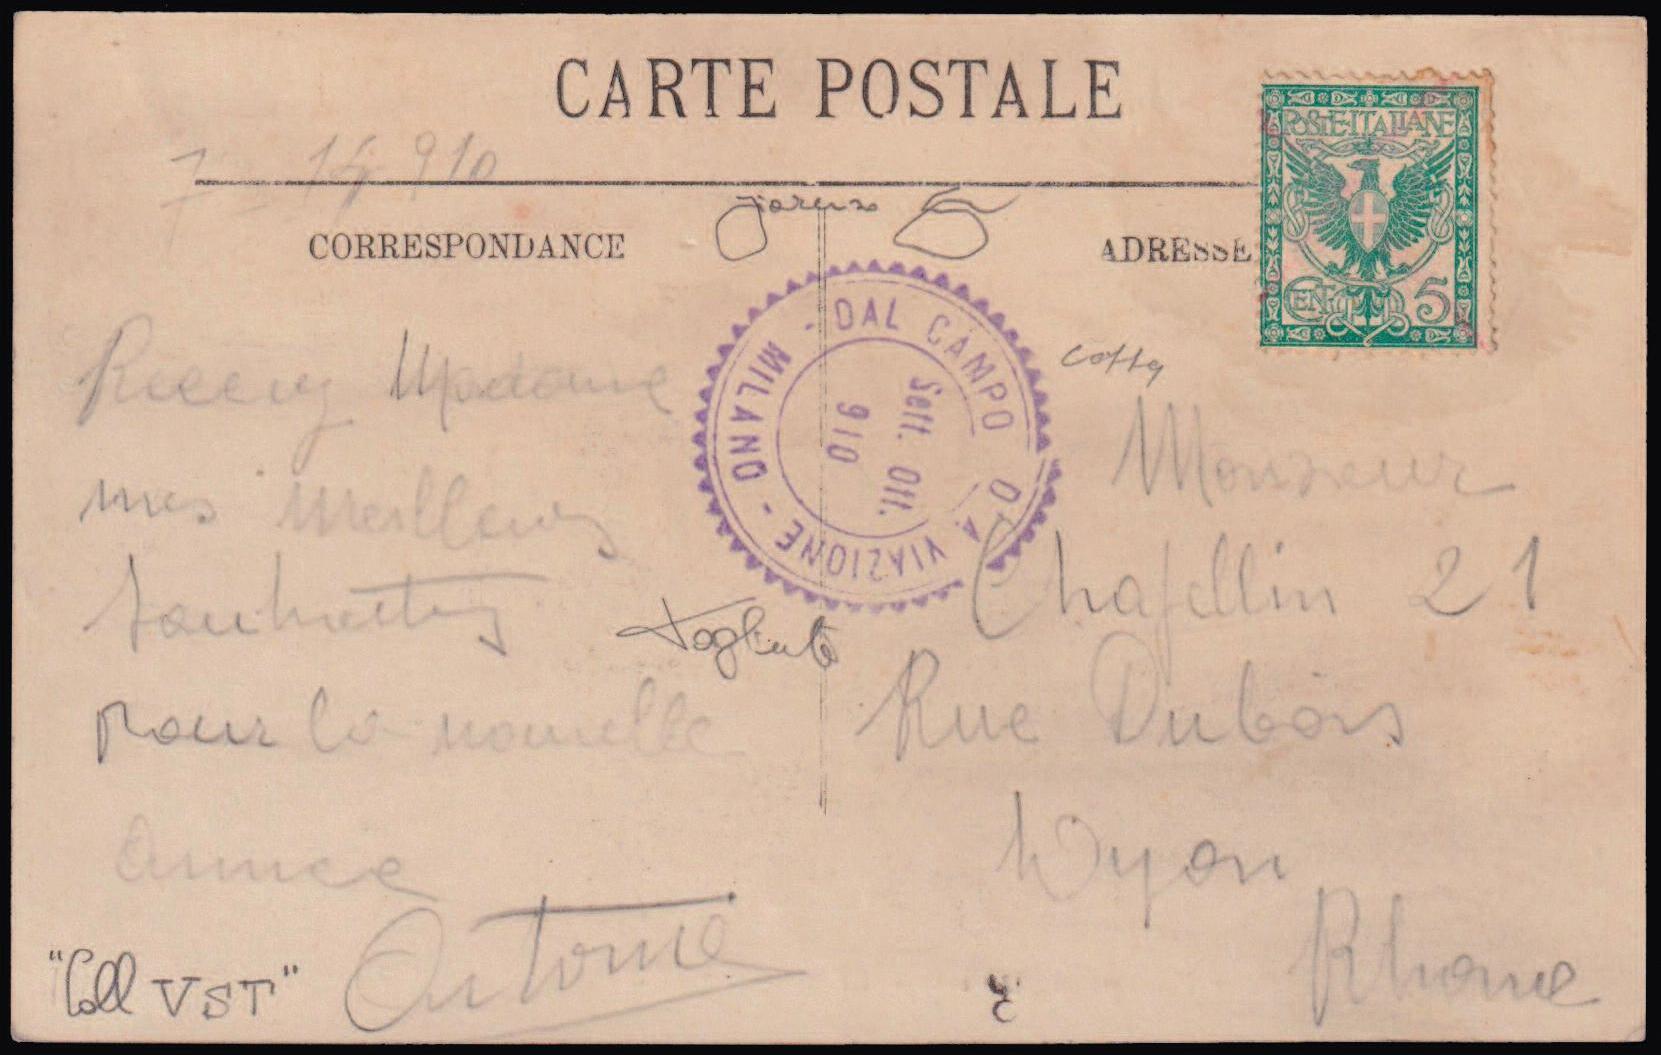 CARTE POSTALE
POSTE·ITALIANE
CENT. 5
910
CORRESPONDANCE
ADRESSE
- DAL CAMPO D'AVIAZIONE - MILANO
Sett. Ott.
910
Madame
mes Meilleurs
pour la nouvelle
année
Antoine
Monsieur
Chapellin 21
Rue Dubois
Lyon
Rhone
"Coll VST"